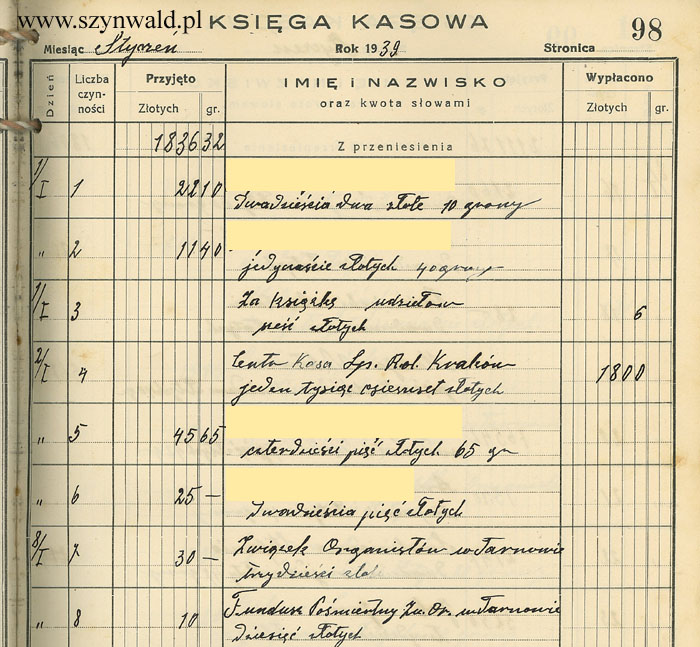 www.szynwald.pl KSIĘGA KASOWA 98
Miesiąc Styczeń Rok 1939 Stronica
Dzień Liczba czynności Przyjęto Złotych gr. IMIĘ I NAZWISKO oraz kwota słowami Wypłacono Złotych gr.
1836 32 Z przeniesienia
1/I 1 22 10
Dwadzieścia dwa złote 10 groszy
" 2 11 40
jedynaście złotych 40 groszy
1/I 3 Za książkę udziałow 6
sześć złotych
2/I 4 Centr Kasa Sp. Rol. Kraków 1800
jeden tysiąc osiemset złotych
" 5 45 65
czterdzieści pięć złotych 65 gr
" 6 25 —
Dwadzieścia pięć złotych
8/I 7 30 — Związek Organistów w Tarnowie
trzydzieści złot
" 8 10 Fundusz Pośmiertny Zw. Or. w Tarnowie
dziesięć złotych